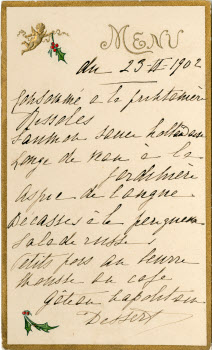 MENU
du 23 1902
Consommé à la printanière
Rissoles
Saumon sauce hollandaise
Longe de veau à la
Jardinière
Aspic de langue
Bécasses à la
Salade russe
Petits pois au beurre
Mousse au café
Gâteau napolitain
Dessert